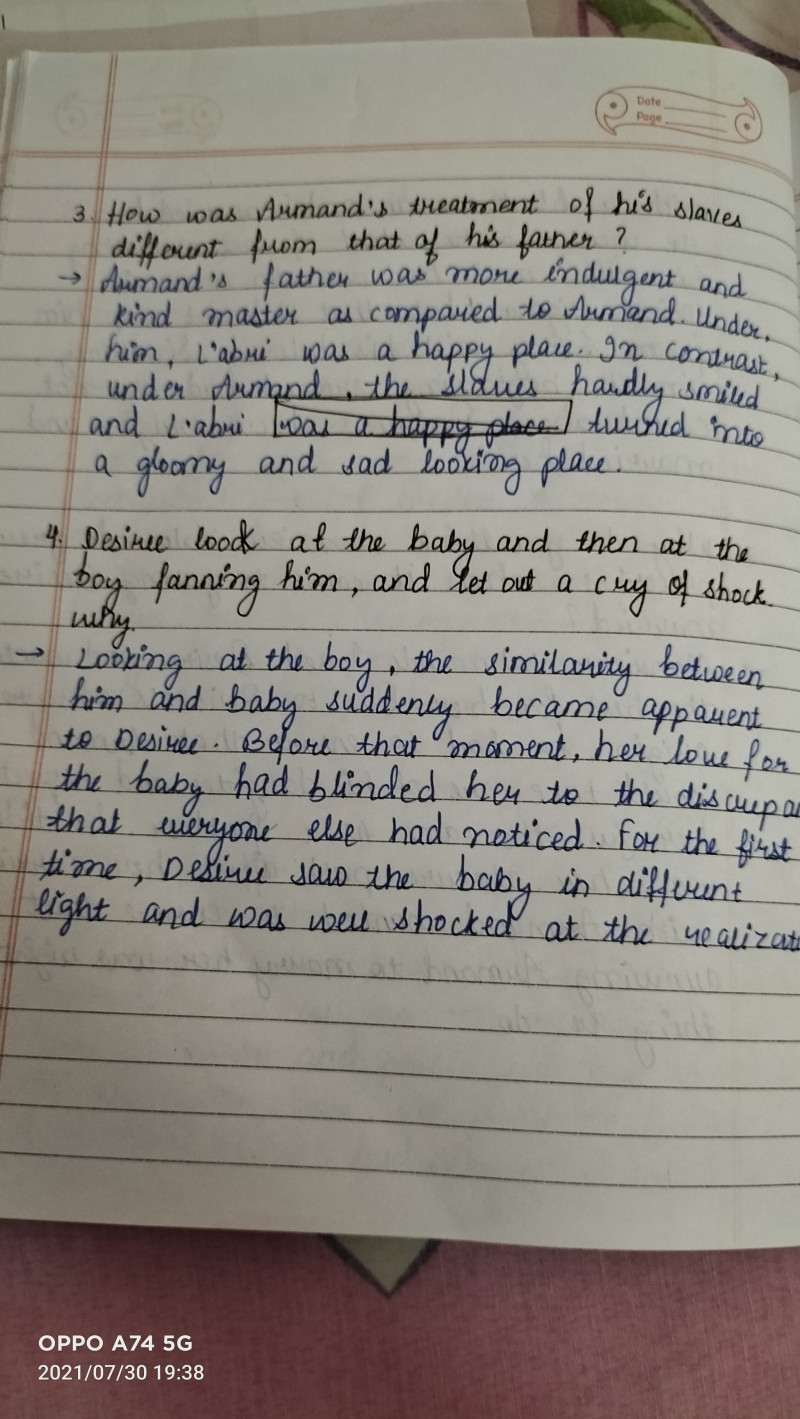 Date
Page
3. How was Armand's treatment of his slaves
different from that of his father ?
→ Armand's father was more indulgent and
kind master as compared to Armand. Under,
him, L'abri was a happy place. In contrast,
under Armand, the slaves hardly smiled
and L'abri was a happy place turned into
a gloomy and sad looking place.
4. Desiree look at the baby and then at the
boy fanning him, and let out a cry of shock.
why.
→ Looking at the boy, the similarity between
him and baby suddenly became apparent
to Desiree. Before that moment, her love for
the baby had blinded her to the discrepa
that everyone else had noticed. For the first
time, Desiree saw the baby in different
light and was well shocked at the realizat
OPPO A74 5G
2021/07/30 19:38